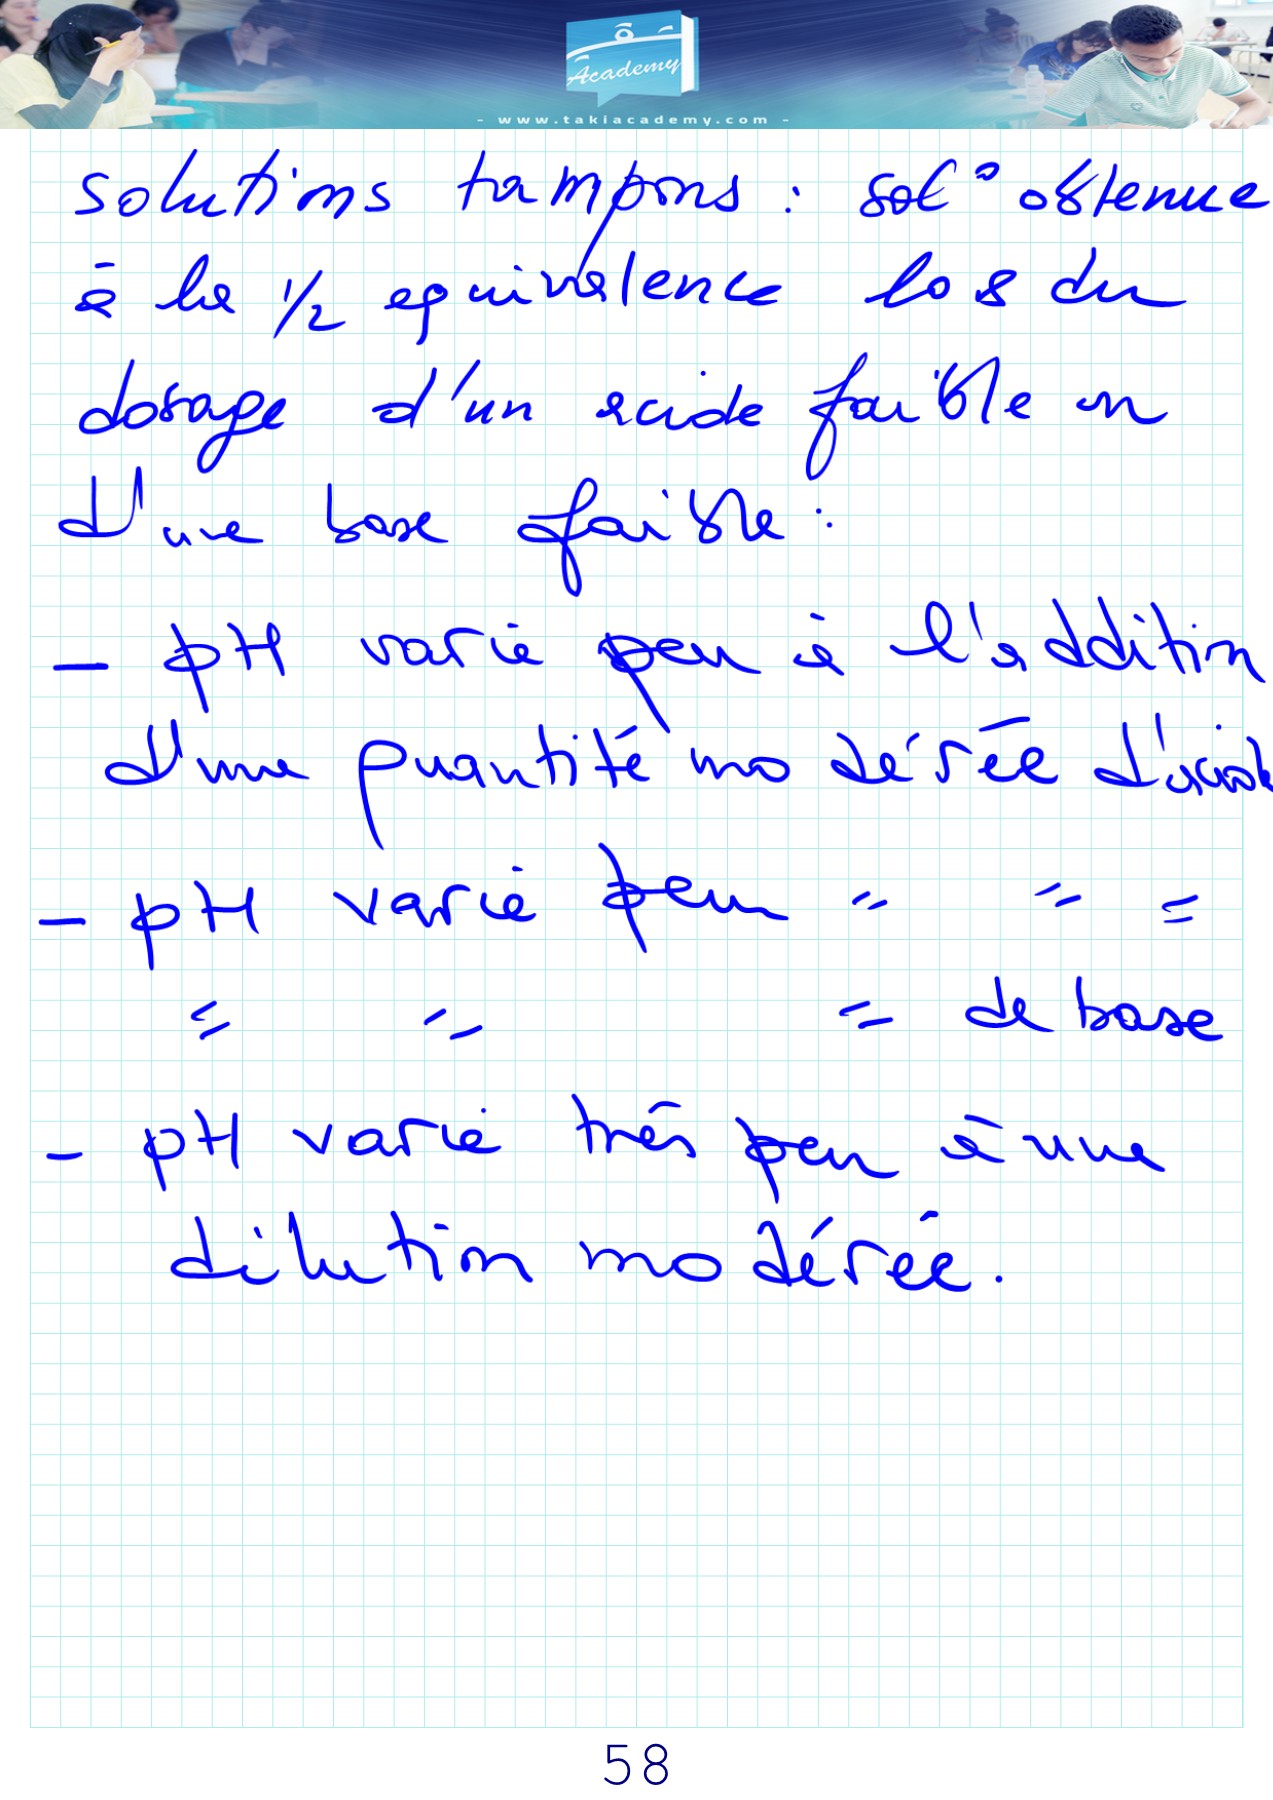 Academy
- www.takiacademy.com -
solutions tampons : sol° obtenue
à la 1/2 equivalence lors du
dosage d'un acide faible ou
d'une base faible :
- pH varie peu à l'addition
d'une quantité modérée d'acide
- pH varie peu " " "
" " " de base
- pH varie très peu à une
dilution modérée.
58